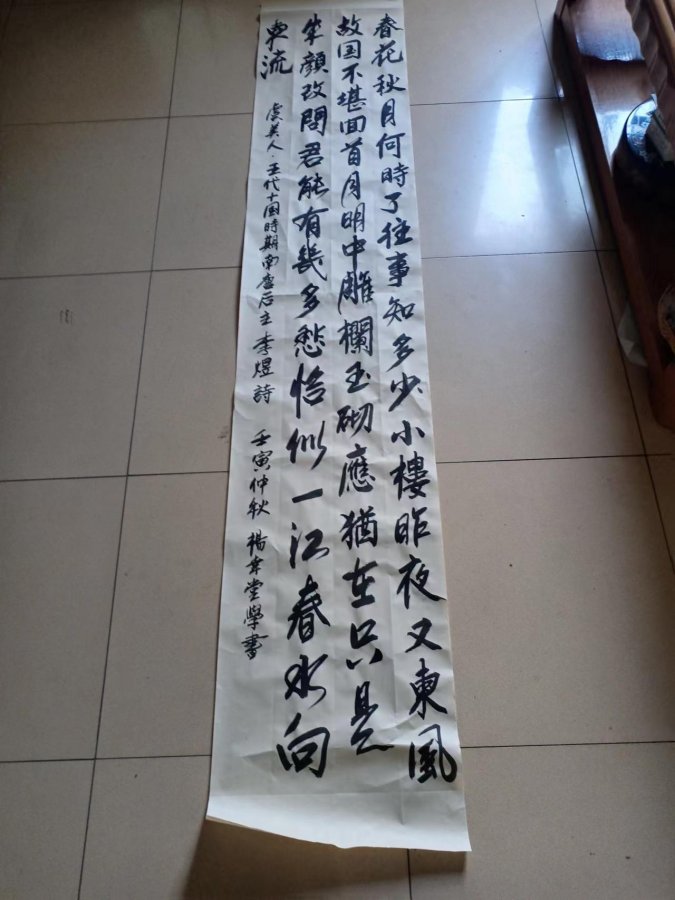 春花秋月何時了往事知多少小樓昨夜又東風
故国不堪回首月明中雕欄玉砌應猶在只是
朱顔改問君能有幾多愁恰似一江春水向
東流
虞美人·五代十国時期南唐后主李煜詩 壬寅仲秋 楊堂學書